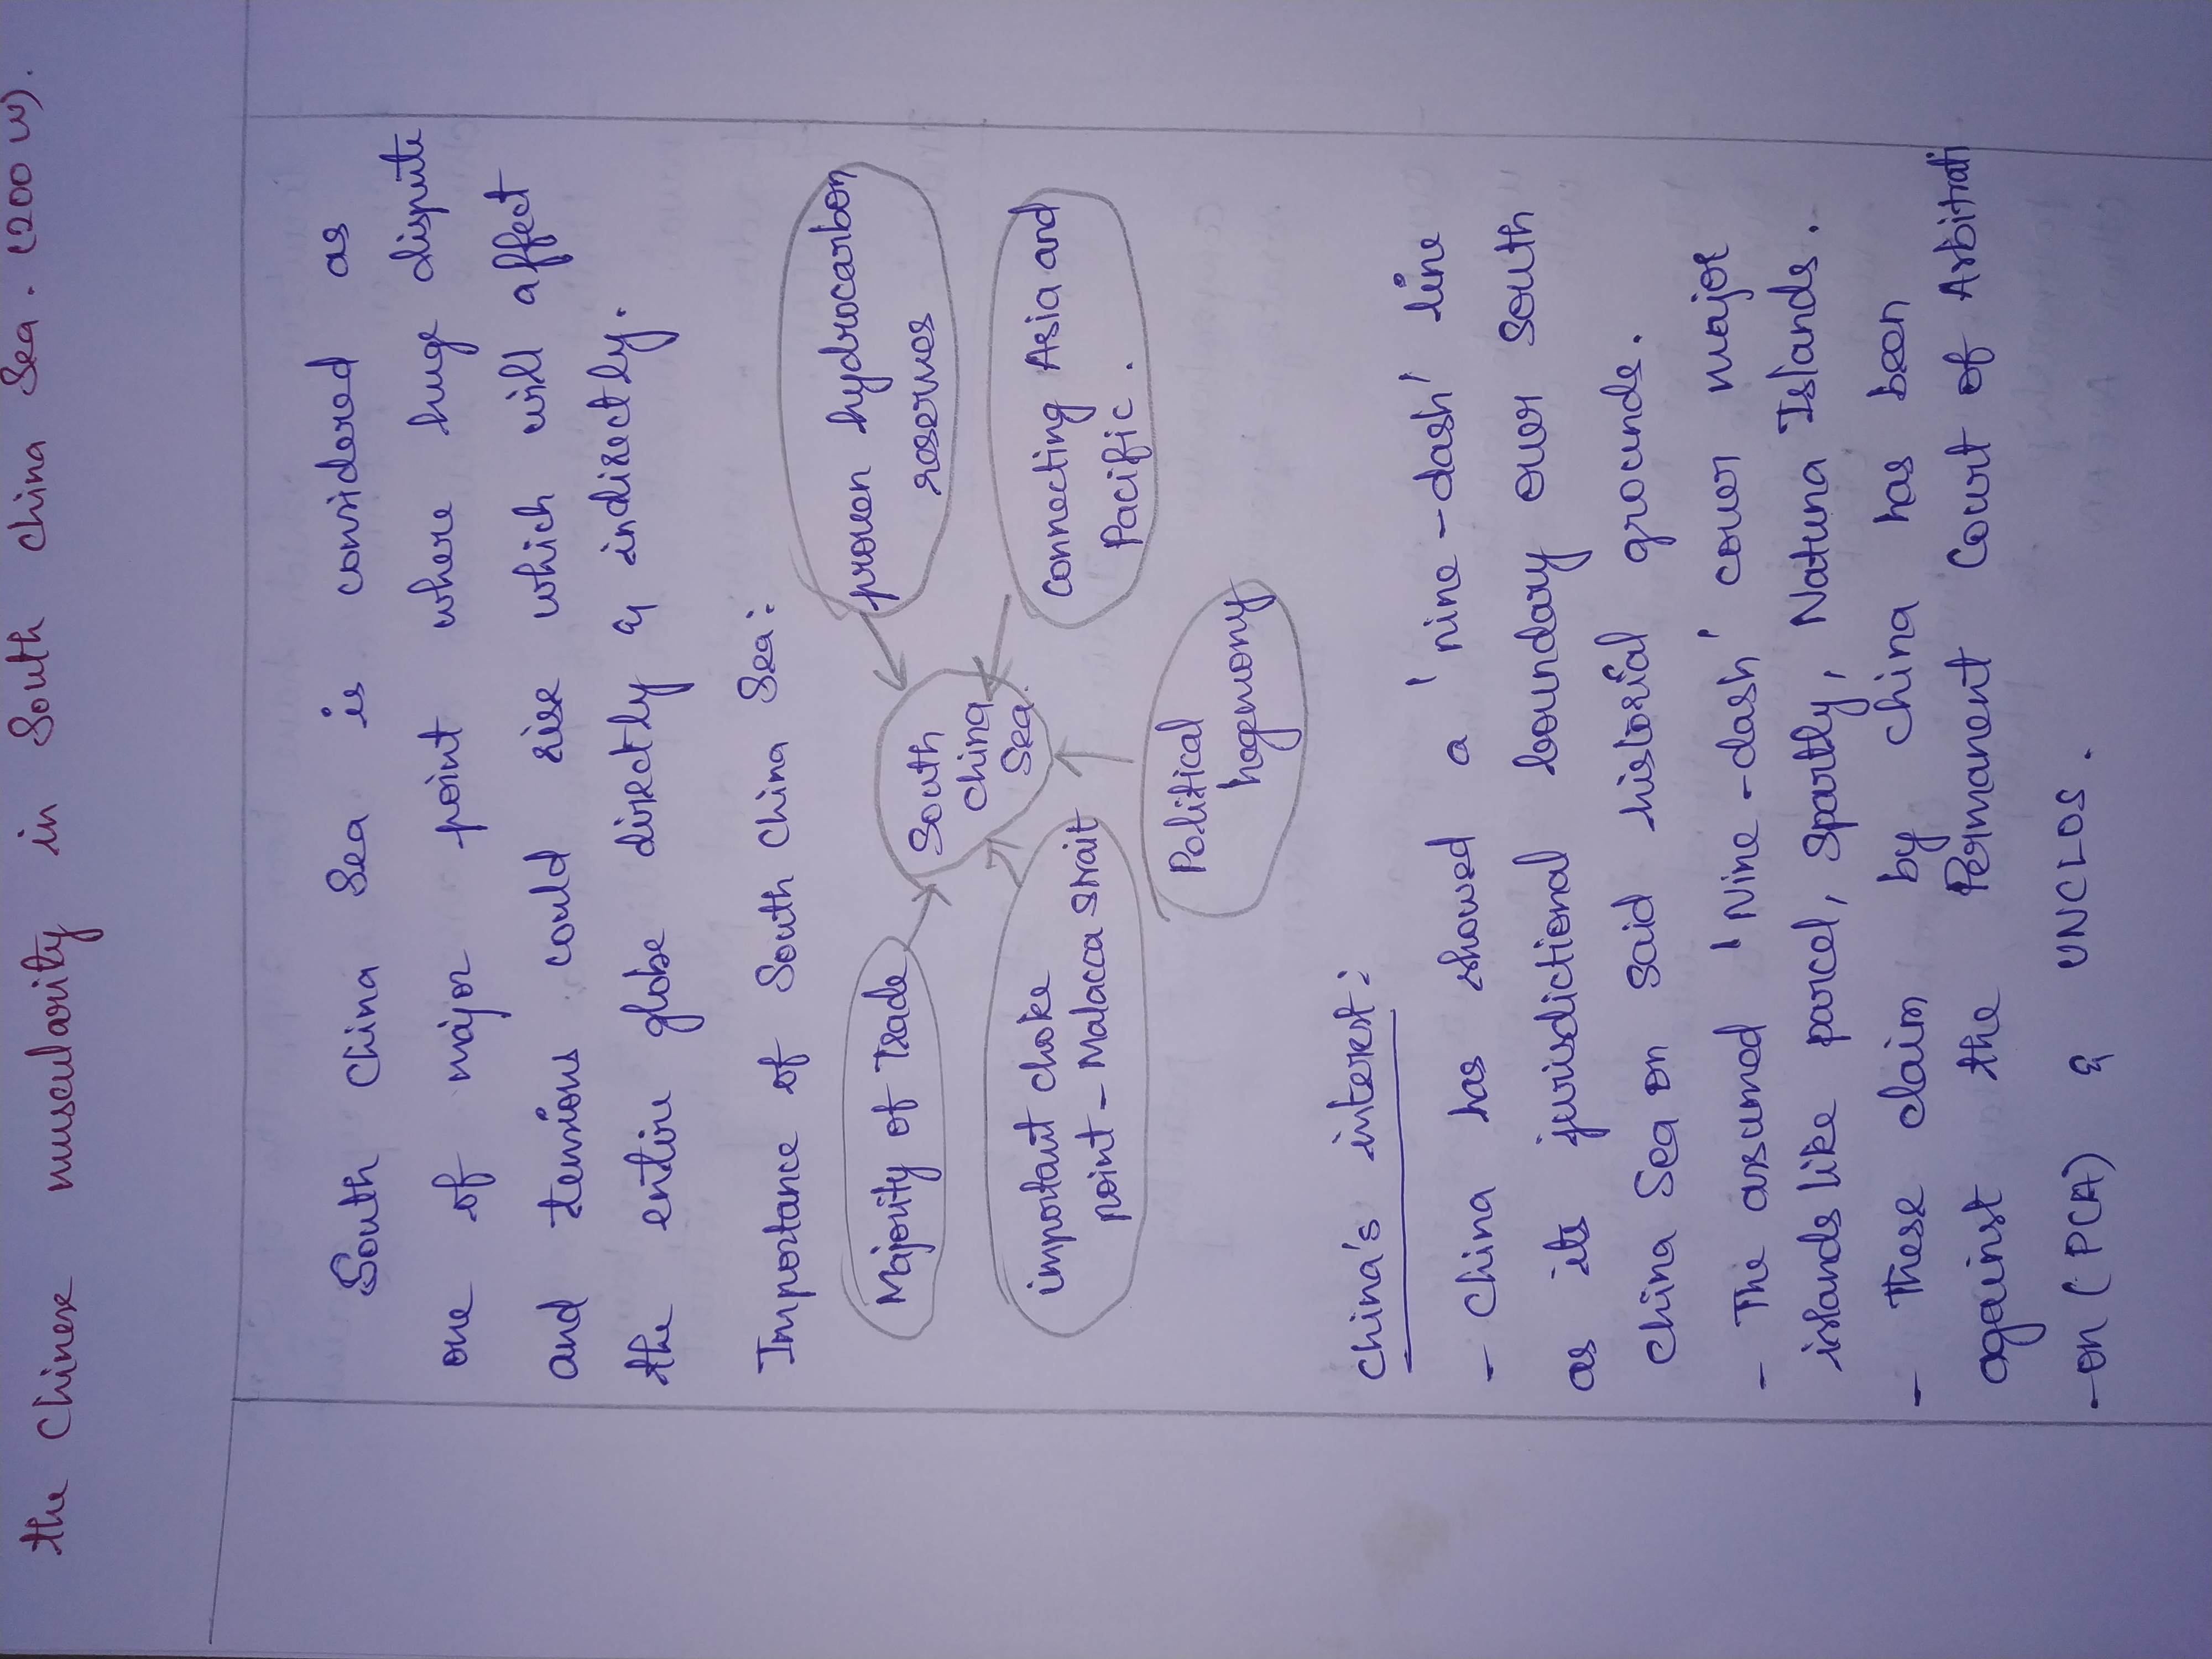 the Chinese muscularity in South China Sea. (200 w).
South China Sea is considered as
one of major point where huge dispute
and tensions could rise which will affect
the entire globe directly & indirectly.
Importance of South China Sea:
Majority of Trade
proven hydrocarbon
reserves
South
China
Sea
important choke
point - Malacca Strait
connecting Asia and
Pacific.
Political
hegemony
China's interest:
- China has showed a 'nine-dash' line
as its jurisdictional boundary over South
China Sea on said historial grounds.
- The assumed 'Nine-dash' cover major
islands like parcel, Spartly, Natuna Islands.
- These claim by China has been
against the Permanent Court of Arbitrati
-on (PCA) & UNCLOS.